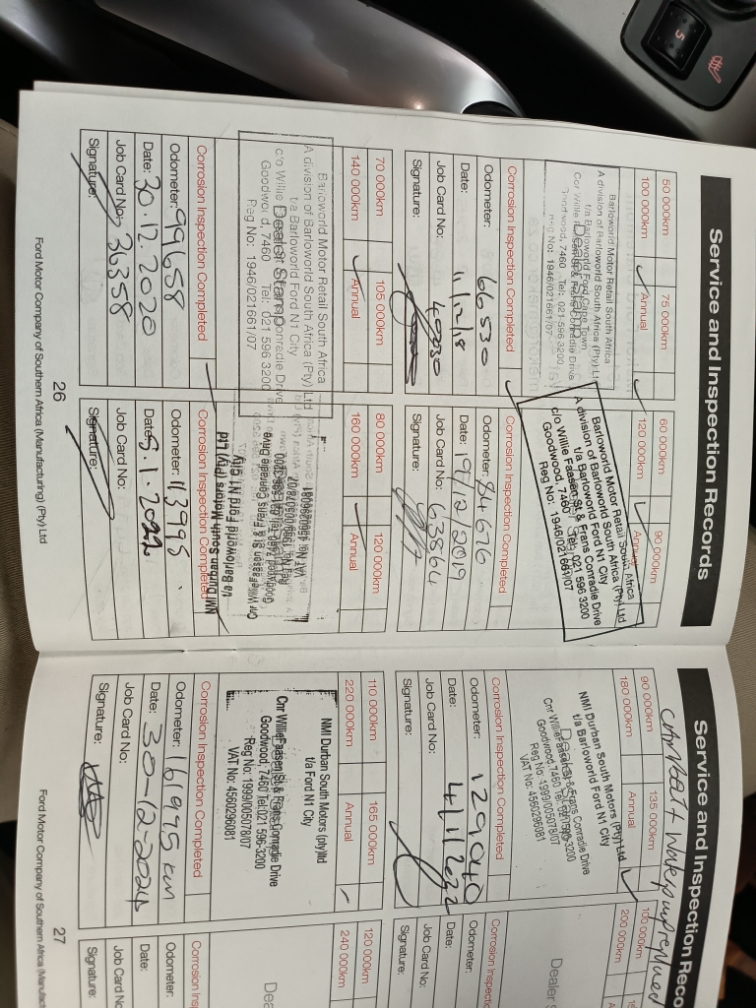 Service and Inspection Records
50 000km
75 000km
100 000km
Annual
Barloworld Motor Retail South Africa
A division of Barloworld South Africa (Pty) Lt
t/a Barloworld Ford Cape Town
7460 Tel: 021 596 3200
Reg No: 1946/021661/07
Corrosion Inspection Completed
Odometer: 66530
Date: 11/12/18
Job Card No: 49030
Signature:
60 000km
90 000km
120 000km
Annual
Barloworld Motor Retail South Africa
A division of Barloworld South Africa (Pty) Ltd
t/a Barloworld Ford N1 City
c/o Willie Faasen St & Frans Conradie Drive
Goodwood, 7460 Tel: 021 596 3200
Reg No: 1946/021661/07
Corrosion Inspection Completed
Odometer: 84676
Date: 19/12/2019
Job Card No: 63864
Signature:
70 000km
105 000km
140 000km
Annual
Barloworld Motor Retail South Africa
A division of Barloworld South Africa (Pty) Ltd
t/a Barloworld Ford N1 City
c/o Willie Conradie Drive
Dealer Stamp
Goodwood, 7460 Tel: 021 596 3200
Reg No: 1946/021661/07
Corrosion Inspection Completed
Odometer: 99658
Date: 30.12.2020
Job Card No: 36358
Signature:
80 000km
120 000km
160 000km
Annual
NMI Durban South Motors (Pty) Ltd
t/a Barloworld Ford N1 City
Corrosion Inspection Completed
Odometer: 113995
Date: 5.1.2022
Job Card No:
Signature:
26
Ford Motor Company of Southern Africa (Manufacturing) (Pty) Ltd
Service and Inspection Reco
90 000km
135 000km
180 000km
Annual
NMI Durban South Motors (Pty) Ltd
t/a Barloworld Ford N1 City
Goodwood, 7460
Reg No: 1999/005078/07
VAT No: 4560296081
Corrosion Inspection Completed
Odometer: 129040
Date:
Job Card No:
Signature:
100 000km
200 000km
Dealer
Corrosion Inspectio
Odometer:
Date:
Job Card No:
Signature:
110 000km
165 000km
220 000km
Annual
NMI Durban South Motors (pty)ltd
t/a Ford N1 City
Cnr Willie Faasen St & Frans Conradie Drive
Goodwood, 7460 Tel:021 596-3200
Reg No: 1999/005078/07
VAT No: 4560296081
Corrosion Inspection Completed
Odometer: 161995 km
Date: 30-12-2024
Job Card No:
Signature:
120 000km
240 000km
Dea
Corrosion Ins
Odometer:
Date:
Job Card No
Signature:
27
Ford Motor Company of Southern Africa (Manufact
5